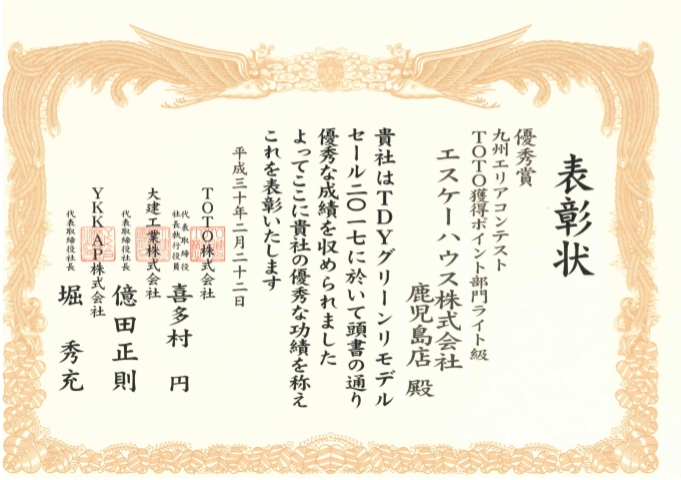 表彰状
優秀賞
九州エリアコンテスト
TOTO獲得ポイント部門ライト級
エスケーハウス株式会社
鹿児島店 殿
貴社はTDYグリーンリモデル
セール二〇一七に於いて頭書の通り
優秀な成績を収められました
よってここに貴社の優秀な功績を称え
これを表彰いたします
平成三十年二月二十二日
TOTO株式会社
代表取締役
社長執行役員
喜多村 円
大建工業株式会社
代表取締役社長
億田正則
YKKAP株式会社
代表取締役社長
堀 秀充